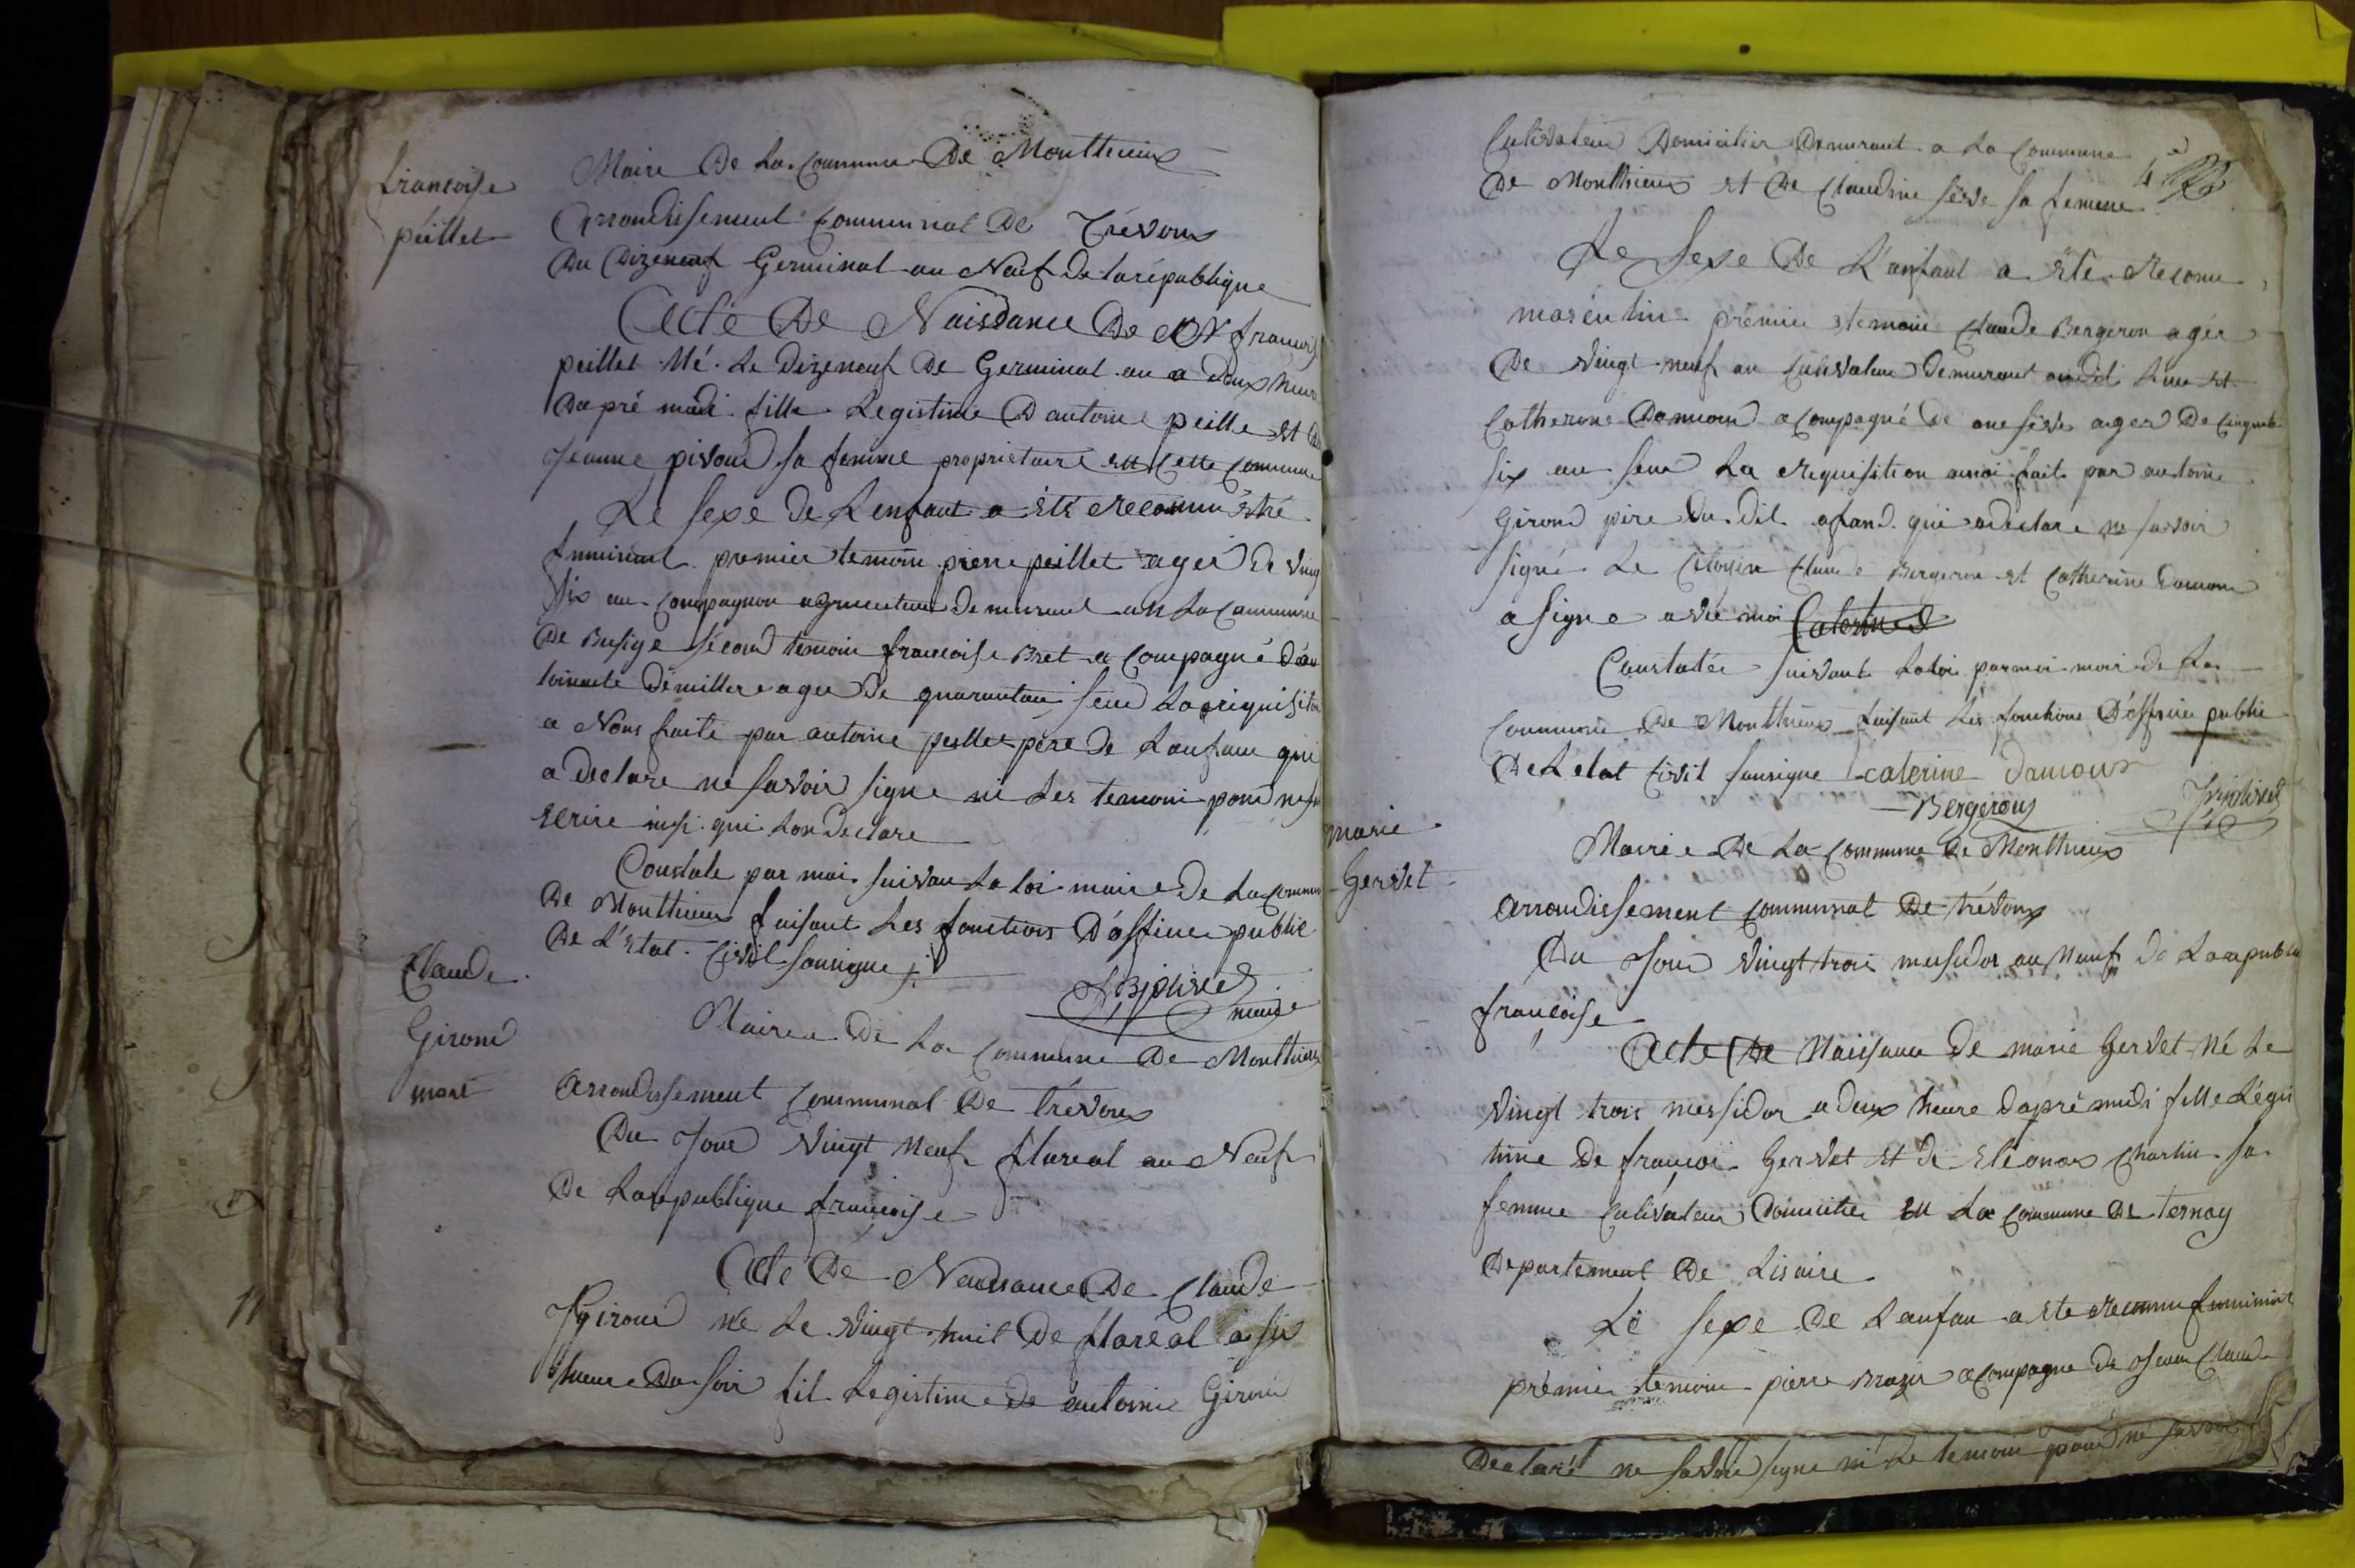 francoise
peillet
Maire De La Commune De Monttrieux
Arrondissement Communal De Trévoux
Du Dizeneuf Germinal an Neuf de la république
Acte De Naissance De francois
peillet Né Le Dizeneuf De Germinal an a deux heure
Dapré midi fille Legistime D'antoine peille et de
Jeanne pivoud sa femme proprietaire en Cette Commune
Le Sexe De Lenfant a été reconnu
premier temoin pierre peillet ager De ving
Six an Compagnon demeurant en La Commune
De second temoin francoise Bret a Compagné
ager De quarantau La requisition
a Nous faite par antoine peillet père De Lanfan qui
a declare ne savoir signe ni Les temoin pour ne
ecrire qui Lon Declare
Constate par moi suivan La loi maire De La Commun
De Monttrieux faisant Les fonctions D'officier public
De L'Etat Civil sousigne
maire
Claude
Giroud
mort
Mairie De La Commune De Monttrieux
Arrondissement Communal De trévoux
Du Jour Vingt Neuf flareal an Neuf
De La republique francoise
Acte De Naissance De Claude
Giroud Né Le Vingt huit De flaréal a six
heure Du soir fil Legistime De antoine Giroud
4e
Culivateur Domicilier Demurant a La Commune
De Montthieux et De Claudine séve sa femme
Le Sexe De L'anfant a été reconu
masculin prémier temoin Claude Bergeron ager
De Vingt neuf an Culivateur Demurant audit Lieu et
Catherine Damour a Compagné De séve ager De Cinquante
six an La requisition amoi fait par antoine
Giroud pere Du dit afand qui a declare ne savoir
signé Le Citoyen Claude Bergeron et Catherine Damour
a signe avec moi
Constatée suivant La loi par moi mair De La
Commune De Montthieux faisant Les fonctions D'officier public
De Letat Civil sousigne caterine damour
Bergeron
marie
Gervet
Mairie De La Commune De Montthieux
arrondissement Communal De trévoux
Du Jour Vingt trois mesidor an Neuf De La republi
francoise
Acte De Naissance De marie Gervet Né Le
Vingt trois messidor a deux heure Dapré midi fille Légis
time De francoi Gervet et De Eléonor Charlin sa
femme Culivateur Domicilier en La Commune De ternay
Departement De Lisaire
Le sexe De Lanfan a ete reconnu fumininne
prémie temoin pierre a Compagne De Jean Claude
Declaré ne savoir signe ni Le temoin pour né savoir